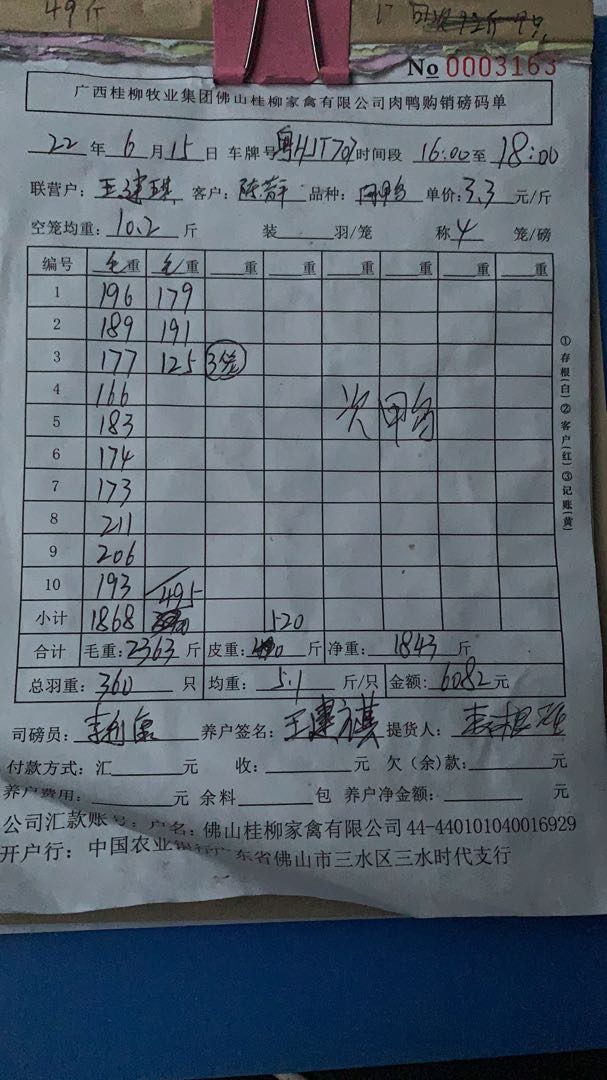 49斤
No 0003163
广西桂柳牧业集团佛山桂柳家禽有限公司肉鸭购销磅码单
22 年 6 月 15 日 车牌号 粤HJT707 时间段 16:00 至 18:00
联营户: 客户: 品种: 单价: 3.3 元/斤
空笼均重: 10.2 斤 装 羽/笼 称 4 笼/磅
编号 毛重 毛重 重 重 重 重 重 重
1 196 179
2 189 191
3 177 125 3笼
4 166
5 183 次 甲鸟
6 174
7 173
8 211
9 206
10 193 495
小计 1868 520
合计 毛重: 2363 斤 皮重: 斤 净重: 1843 斤
总羽重: 360 只 均重: 5.1 斤/只 金额: 6082 元
司磅员: 养户签名: 提货人:
付款方式: 汇 元 收: 元 欠(余)款: 元
养户费用: 元 余料 包 养户净金额: 元
公司汇款账号: 户名: 佛山桂柳家禽有限公司 44-440101040016929
开户行: 中国农业银行广东省佛山市三水区三水时代支行
①存根(白)②客户(红)③记账(黄)